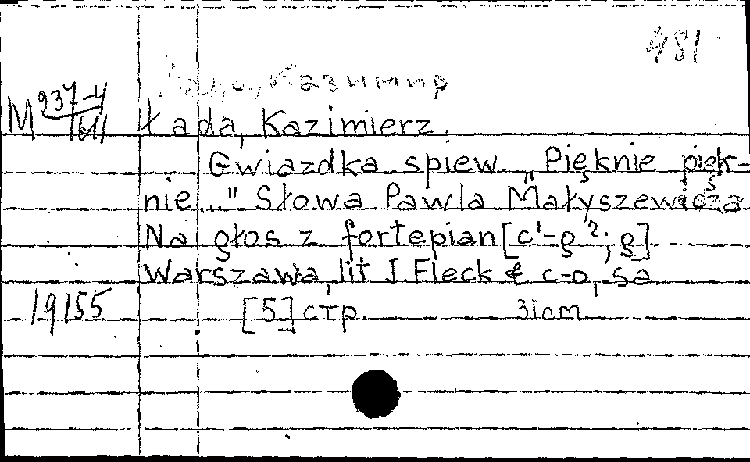 481
Лада, Казимир
M 937-4/1611
Łada, Kazimierz.
Gwiazdka spiew „Pięknie pięk-
nie..." Słowa Pawla Małyszewicza
Na głos z fortepian [c¹-g²; g]
Warszawa, lit J. Fleck & c-o, sa
19155 [5] стр. 31cm